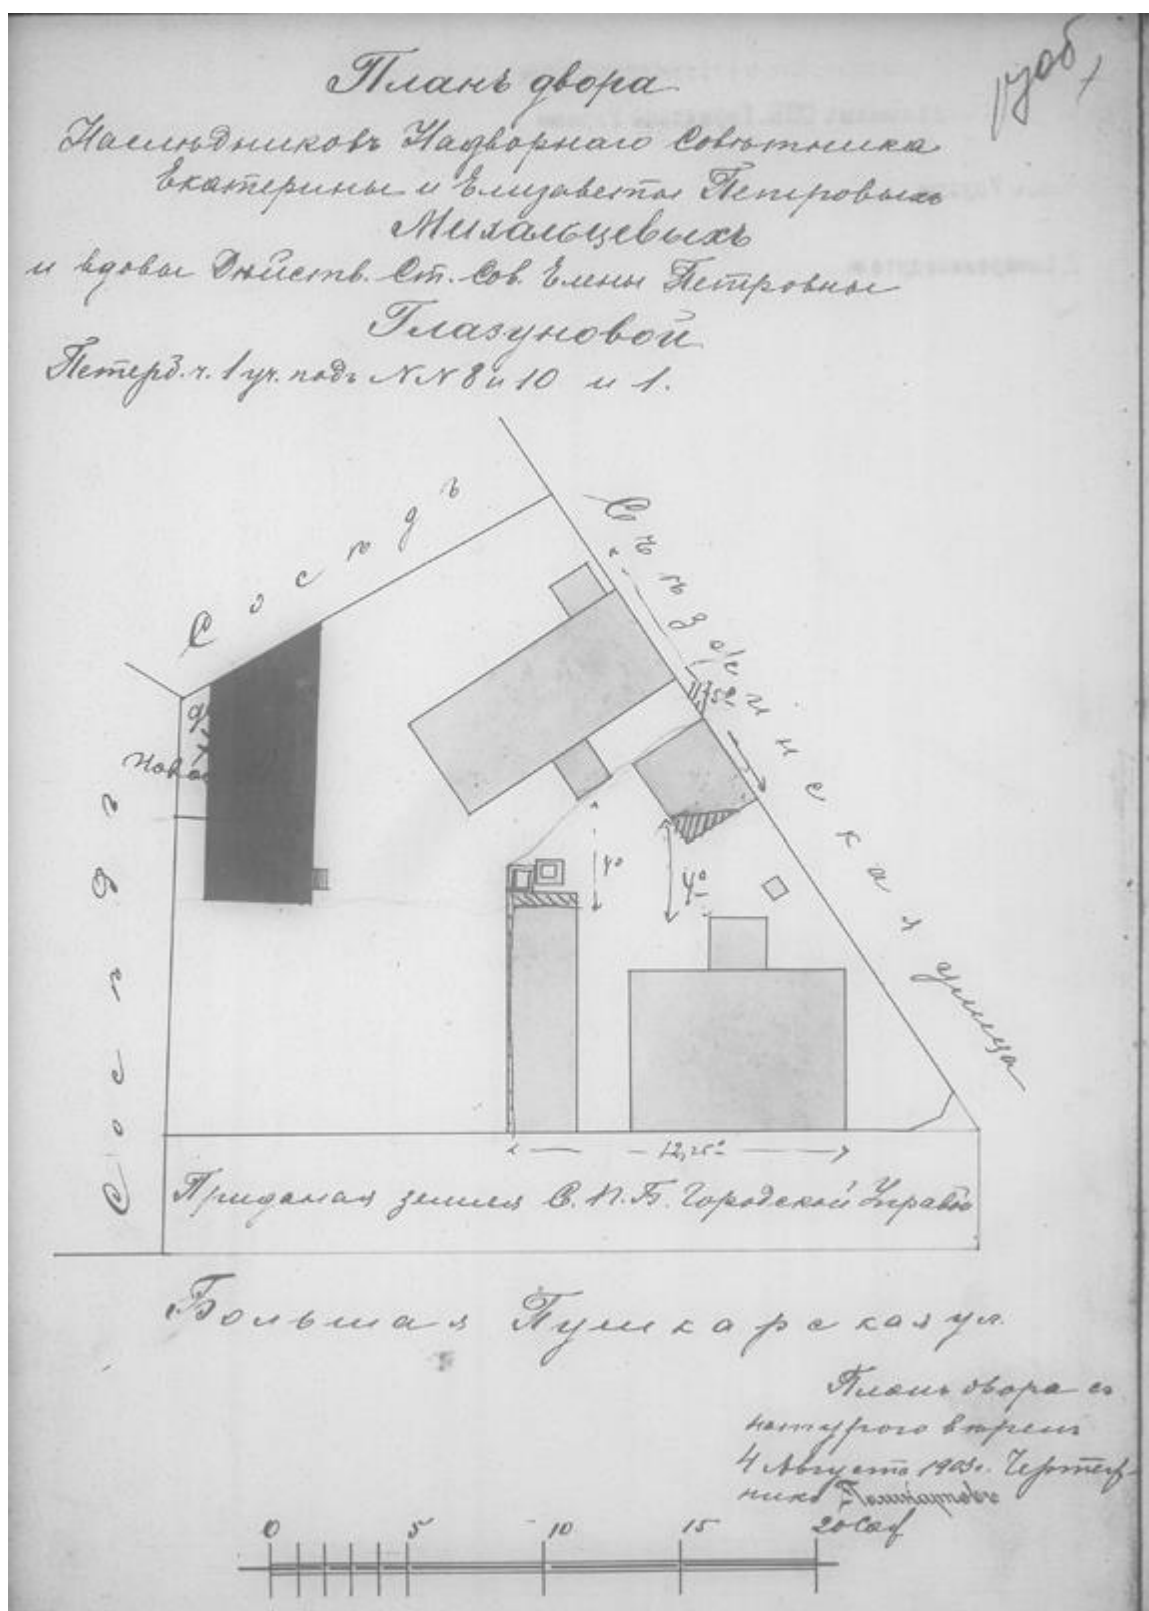 Планъ двора
Наслѣдниковъ Надворнаго Совѣтника
Екатерины и Елизаветы Петровыхъ
Михальцевыхъ
и вдовы Дѣйств. Ст. Сов. Елены Петровны
Глазуновой
Петерб. ч. 1 уч. подъ NN 8 и 10 и 1.
Сосѣдъ
Съѣзжинская улица
Сосѣдъ
4°
12,25°
земля С. П. Б. Городской Управы
Большая Пушкарская ул.
Планъ двора съ
натурою вѣренъ
4 Августа 1903г. Чертеж-
никъ
0 5 10 15 20 саж